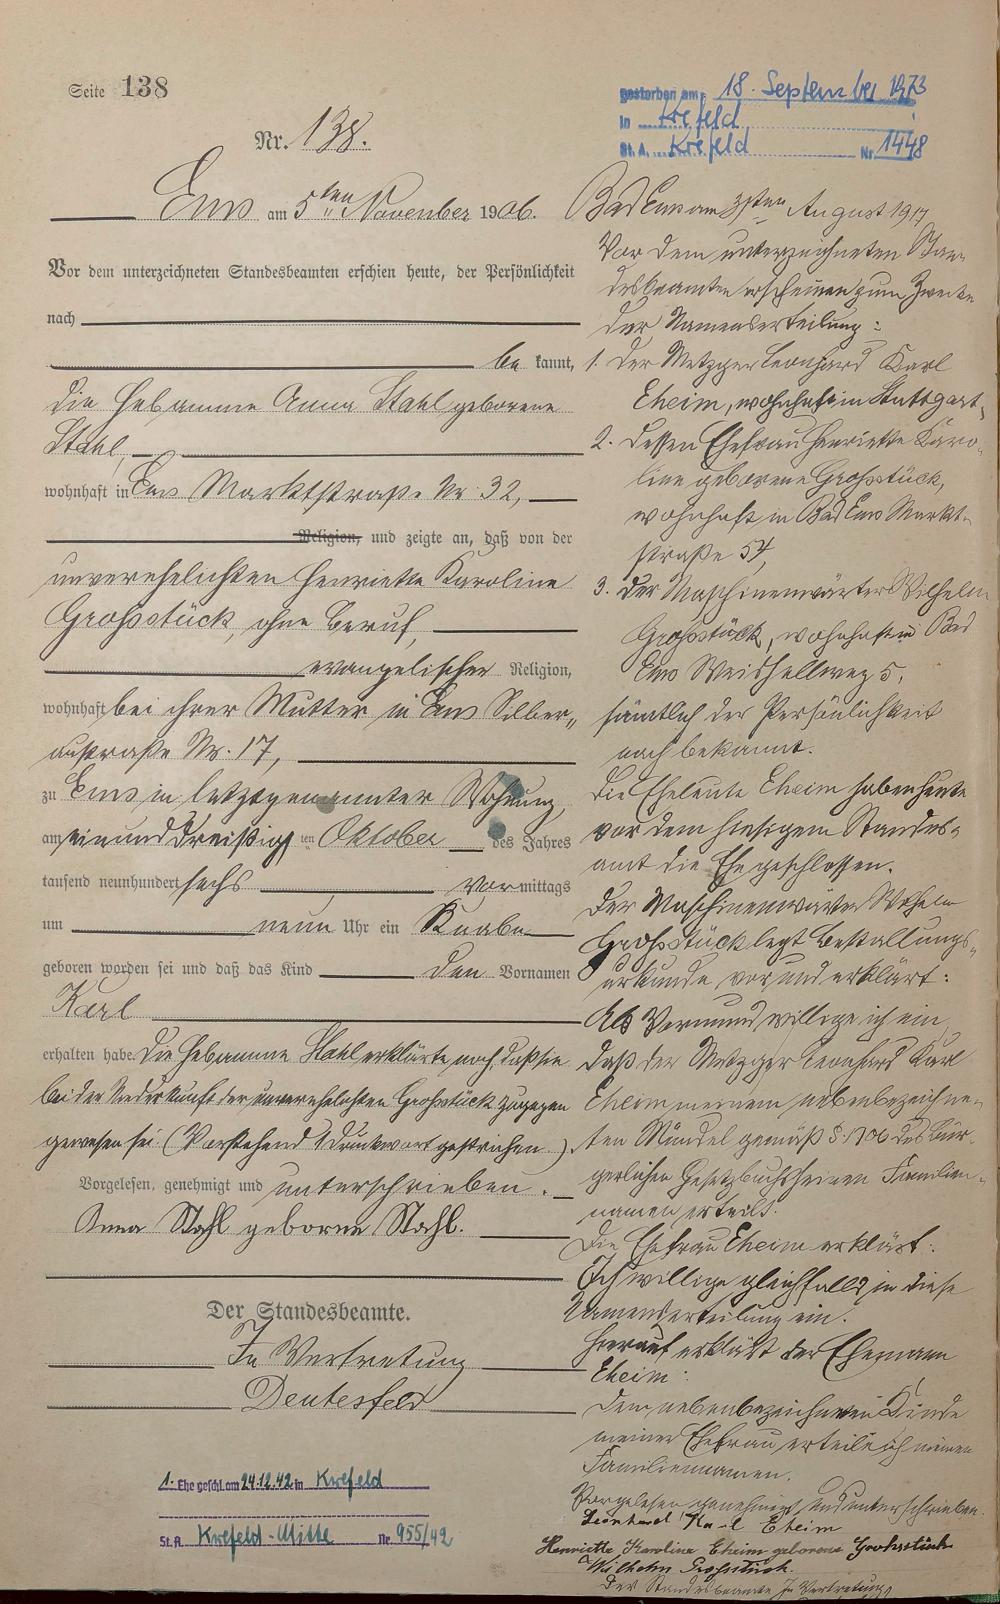 Seite 138
Nr. 138.
Ems am 5ten November 1906.
Vor dem unterzeichneten Standesbeamten erschien heute, der Persönlichkeit
nach
be kannt,
die Hebamme Anna Stahl geborene
Stahl,
wohnhaft in Ems Marktstraße Nr. 32,
Religion, und zeigte an, daß von der
unverehelichten Henriette Karoline
Großstück, ohne Beruf,
evangelischer Religion,
wohnhaft bei ihrer Mutter in Ems Silber„
austraße Nr. 17,
zu Ems in letztgenannter Wohnung,
am einunddreißigsten Oktober des Jahres
tausend neunhundert sechs vormittags
um neun Uhr ein Knabe
geboren worden sei und daß das Kind den Vornamen
Karl
erhalten habe. Die Hebamme Stahl erklärte noch, daß sie
bei der Niederkunft der unverehelichten Großstück zugegen
gewesen sei. (Vorstehend 1 Druckwort gestrichen.)
Vorgelesen, genehmigt und unterschrieben.
Anna Stahl geborne Stahl.
Der Standesbeamte.
In Vertretung
Deutesfeld
1. Ehe geschl. am 24.12.42 in Krefeld
St.A. Krefeld-Mitte Nr. 955/42
gestorben am: 18. September 1973
in Krefeld
St. A. Krefeld Nr. 1448
Bad Ems am 31sten August 1917
Vor dem unterzeichneten Stan-
desbeamten erscheinen zum Zwecke
der Namenserteilung:
1. der Metzger Leonhard Karl
Eheim, wohnhaft in Stuttgart,
2. dessen Ehefrau Henriette Karo-
line geborene Großstück,
wohnhaft in Bad Ems Markt-
straße 54,
3. der Maschinenwärter Wilhelm
Großstück, wohnhaft in Bad
Ems 5,
sämtlich der Persönlichkeit
nach bekannt.
Die Eheleute Eheim haben heute
vor dem hiesigen Standes-
amt die Ehe geschlossen.
Der Maschinenwärter Wilhelm
Großstück legt Bestallungs-
urkunde vor und erklärt:
Als Vormund willige ich ein,
daß der Metzger Leonhard Karl
Eheim meinem nebenbezeichne-
ten Mündel gemäß §. 1706 des Bür-
gerlichen Gesetzbuchs seinen Familien-
namen erteilt.
Die Ehefrau Eheim erklärt:
Ich willige gleichfalls in diese
Namenserteilung ein.
Hierauf erklärt der Ehemann
Eheim:
Dem nebenbezeichneten Kinde
meiner Ehefrau erteile ich meinen
Familiennamen.
Vorgelesen genehmigt und unterschrieben.
Leonhard Karl Eheim
Henriette Karoline Eheim geborene Grohsstück
Wilhelm Grohsstück.
Der Standesbeamte In Vertretung